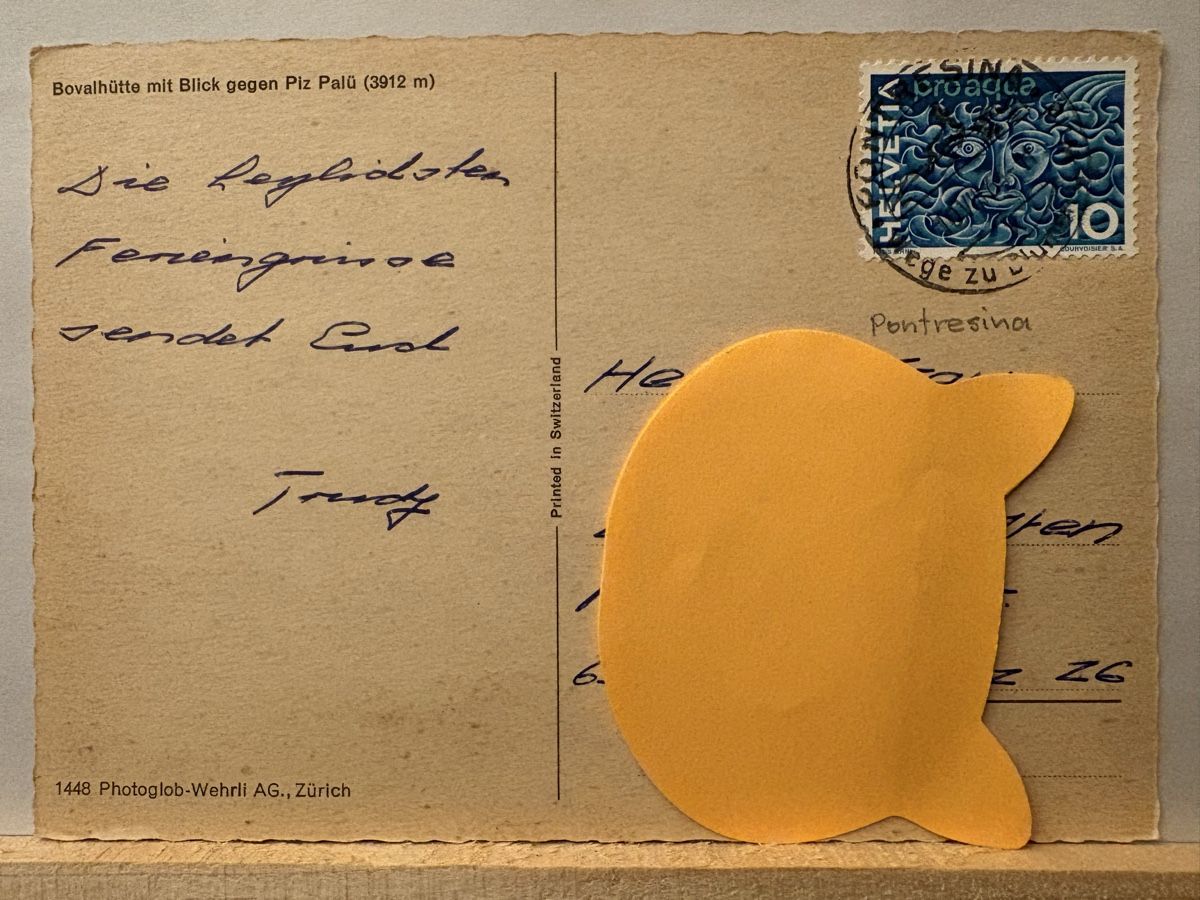 Bovalhütte mit Blick gegen Piz Palü (3912 m)
Die
Feriengrüsse
sendet Euch
Trudy
1448 Photoglob-Wehrli AG., Zürich
Printed in Switzerland
HELVETIA
pro aqua
10
COURVOISIER S.A.
Pontresina
ZG